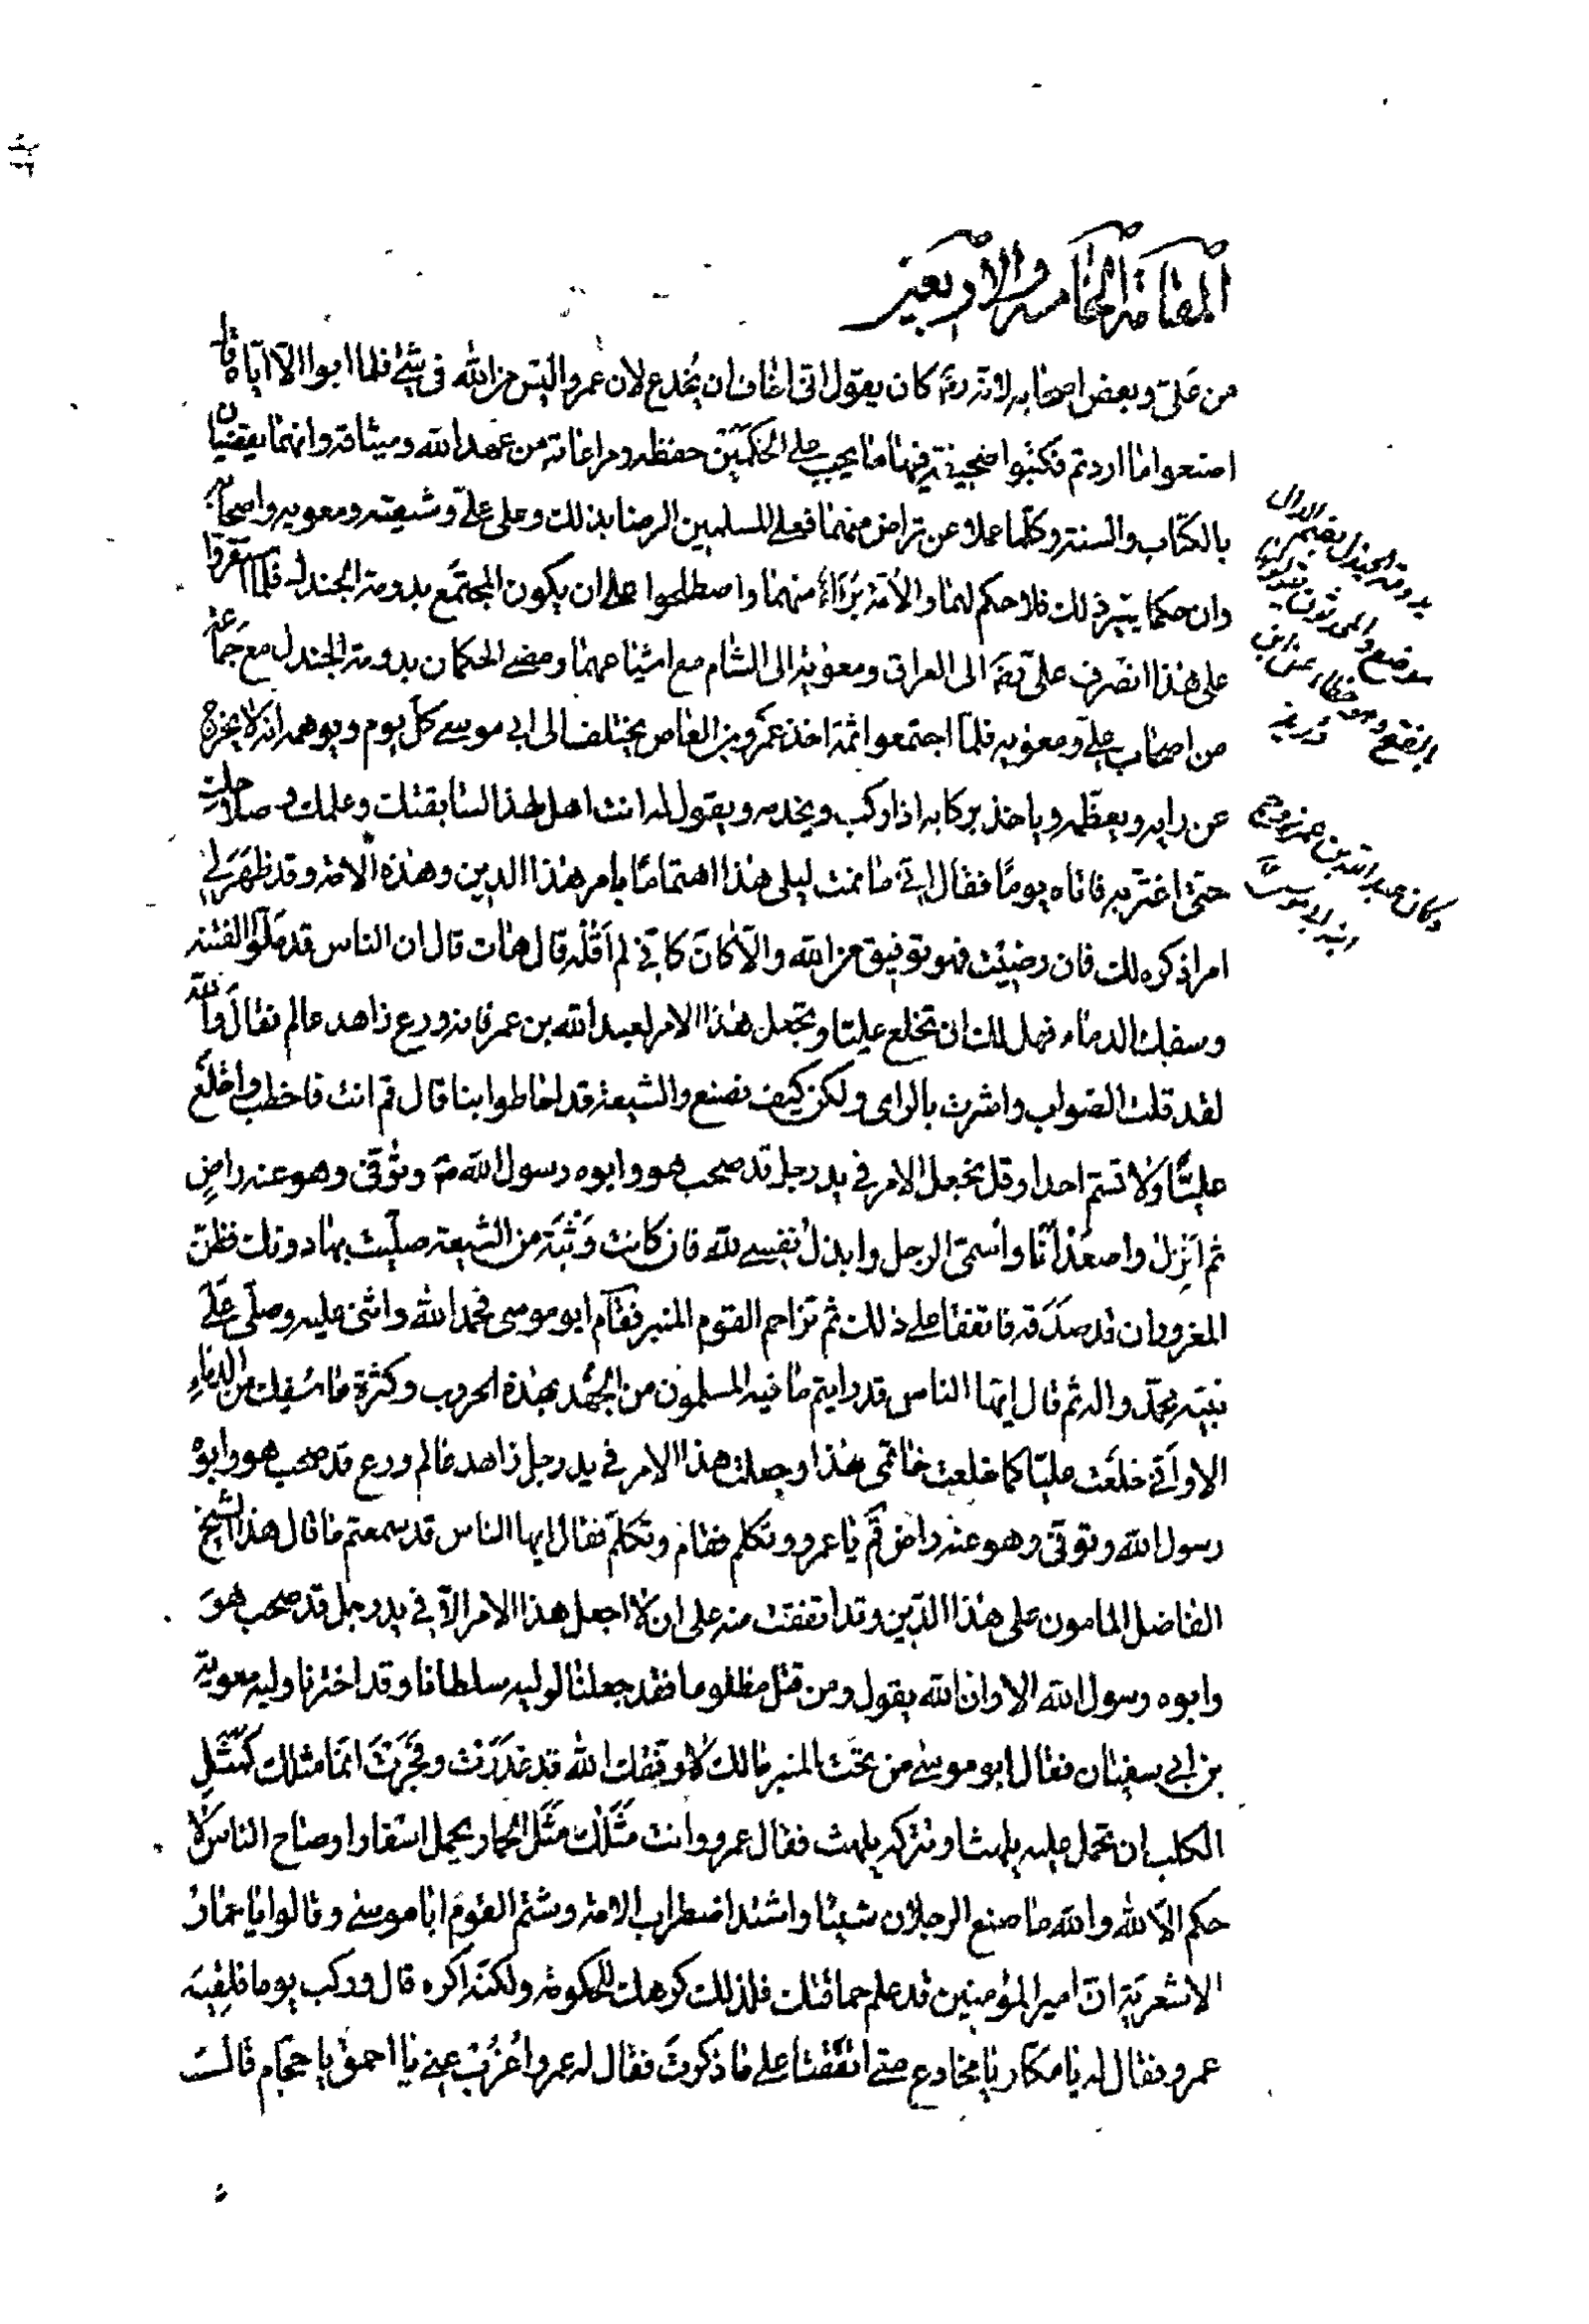 المقامة الخامسة والاربعين
من علىّ وبعض اصحابه لانه رضـ كان يقول انى اخاف ان يُخدع لان عمروا ليس من الله فى شئ فلما ابوا الّا اياه قال
اصنعوا ما اردتم فكتبوا صحيفة فيها ما يجب على الحكمَيْن حفظه ومراعاته من عهد الله وميثاقه وانهما يقضيان
بالكتاب والسنة وكلما عملا عن تراض منهما فعلى المسلمين الرضا بذلك وعلى علىّ وشيعته ومعويه واصحابه
وان حكما بغير ذلك فلا حكم لهما والأمة بُرَاءُ منهما واصطلحوا على ان يكون المجتمَع بدومة الجندل فلما تفرقوا
على هذا انصرف علىّ الى العراق ومعوية الى الشام مع اشياعهما ومضى الحكمان بدومة الجندل مع جماعة
من اصحاب على ومعويه فلمّا اجتمعوا ثمّة اخذ عمرو بن العاص يختلف الى ابى موسى كل يوم ويوهمه انه لا يخرج
عن رايه ويعظّمه وياخذ بركابه اذا ركب ويخدمه ويقول له انت اهل لهذا لسابقتك وعلمك وصلاحك
حتى اغتر به فاتاه يومًا فقال انّى ما نمت ليلى هذا اهتمامًا بامر هذا الدين وهذه الامة وقد ظهَرَ لى
امر اذكره لك فان رضيْت فهو توفيق من الله والّا كانَ كانّى لم اقُلْه قال هات قال ان الناس قد ملّوا الفتنه
وسفك الدماء فهل لك ان تخلع عليّا وتجعل هذا الامر لعبد الله بن عمر فانه ورع زاهد عالم فقال والله
لقد قلت الصواب واشرت بالراى ولكن كيف نصنع والشيعة قد احاطوا بنا قال قم انت فاخطب واخلَع
عليًّا ولا تسمّ احدا وقل نجعل الامر فى يد رجل قد صحب هو وابوه رسول الله صـ وتُوُفّى وهو عنه راضٍ
ثم انْزل واصعَدُ انَا واُسمّى الرجل وابذلُ نفسى لله فان كانت وَثْبَة من الشيعة صليت بها دونك فظنّ
المغرور ان قد صدَقَه فاتفقا على ذلك ثم تزاحم القوم المنبر فقام ابو موسى فحمد الله واثنى عليه وصلّى عَلَى
نبيّه محمّد واله ثم قال ايّها الناس قد رايتم ما فيه المسلمون من الجُهْد بهذه الحروب وكثرة ما سُفك من الدماءِ
الا وانّى خلعْت عليّا كما خلعت خاتمى هذا وجعلت هذا الامر فى يد رجل زاهد عالم ورع قد صحب هو وابوه
رسول الله وتوفى وهو عنه راض قم يا عمرو وتكلم فقام وتكلّم فقال ايها الناس قد سمعتم ما قال هذا الشيخ
الفاضل المامون على هذا الدّين وقد اتفقت منه على ان لا اجعل هذا الامر الّا فى يد رجل قد صحب هوَ
وابوه رسول الله الا وان الله يقول ومن قتل مظلوما فقد جعلنا لوليه سلطانا وقد اخترنا وليه معوية
بن ابى سفيان فقال ابو موسى من تحْت المنبر مالك لا وفّقك الله قد غدَرْت وفجَرْتَ انّما مثلك كمثَلِ
الكلب ان تحمل عليه يلهث او تتركه يلهث فقال عمرو وانت مثَلُك مَثَل الحمار يحمل اسفارا وصاح الناس لا
حكم الّا لله والله ما صنع الرجلان شيئا واشتد اضطراب الامة وشتم القومُ ابا موسى وقالوا يا حمارَ
الاشعريّة انّ امير المؤمنين قد علم حماقتك فلذلك كرهك للحكومة ولكنه اُكره قال وركب يوما فلقِيَه
عمرو فقال له يا مكّار يا مخادع متى اتفَقْنا على ما ذكرتَ فقال له عمرو اُعْزُبْ عنى يا احمق يا حجّام قالت
بدومة الجندل بضم الدال
موضع والمحدثون
الفتح وهو خطاء عن ابن
دريد
وكان عبد الله بن عمر زوج
ابنة ابو موسى